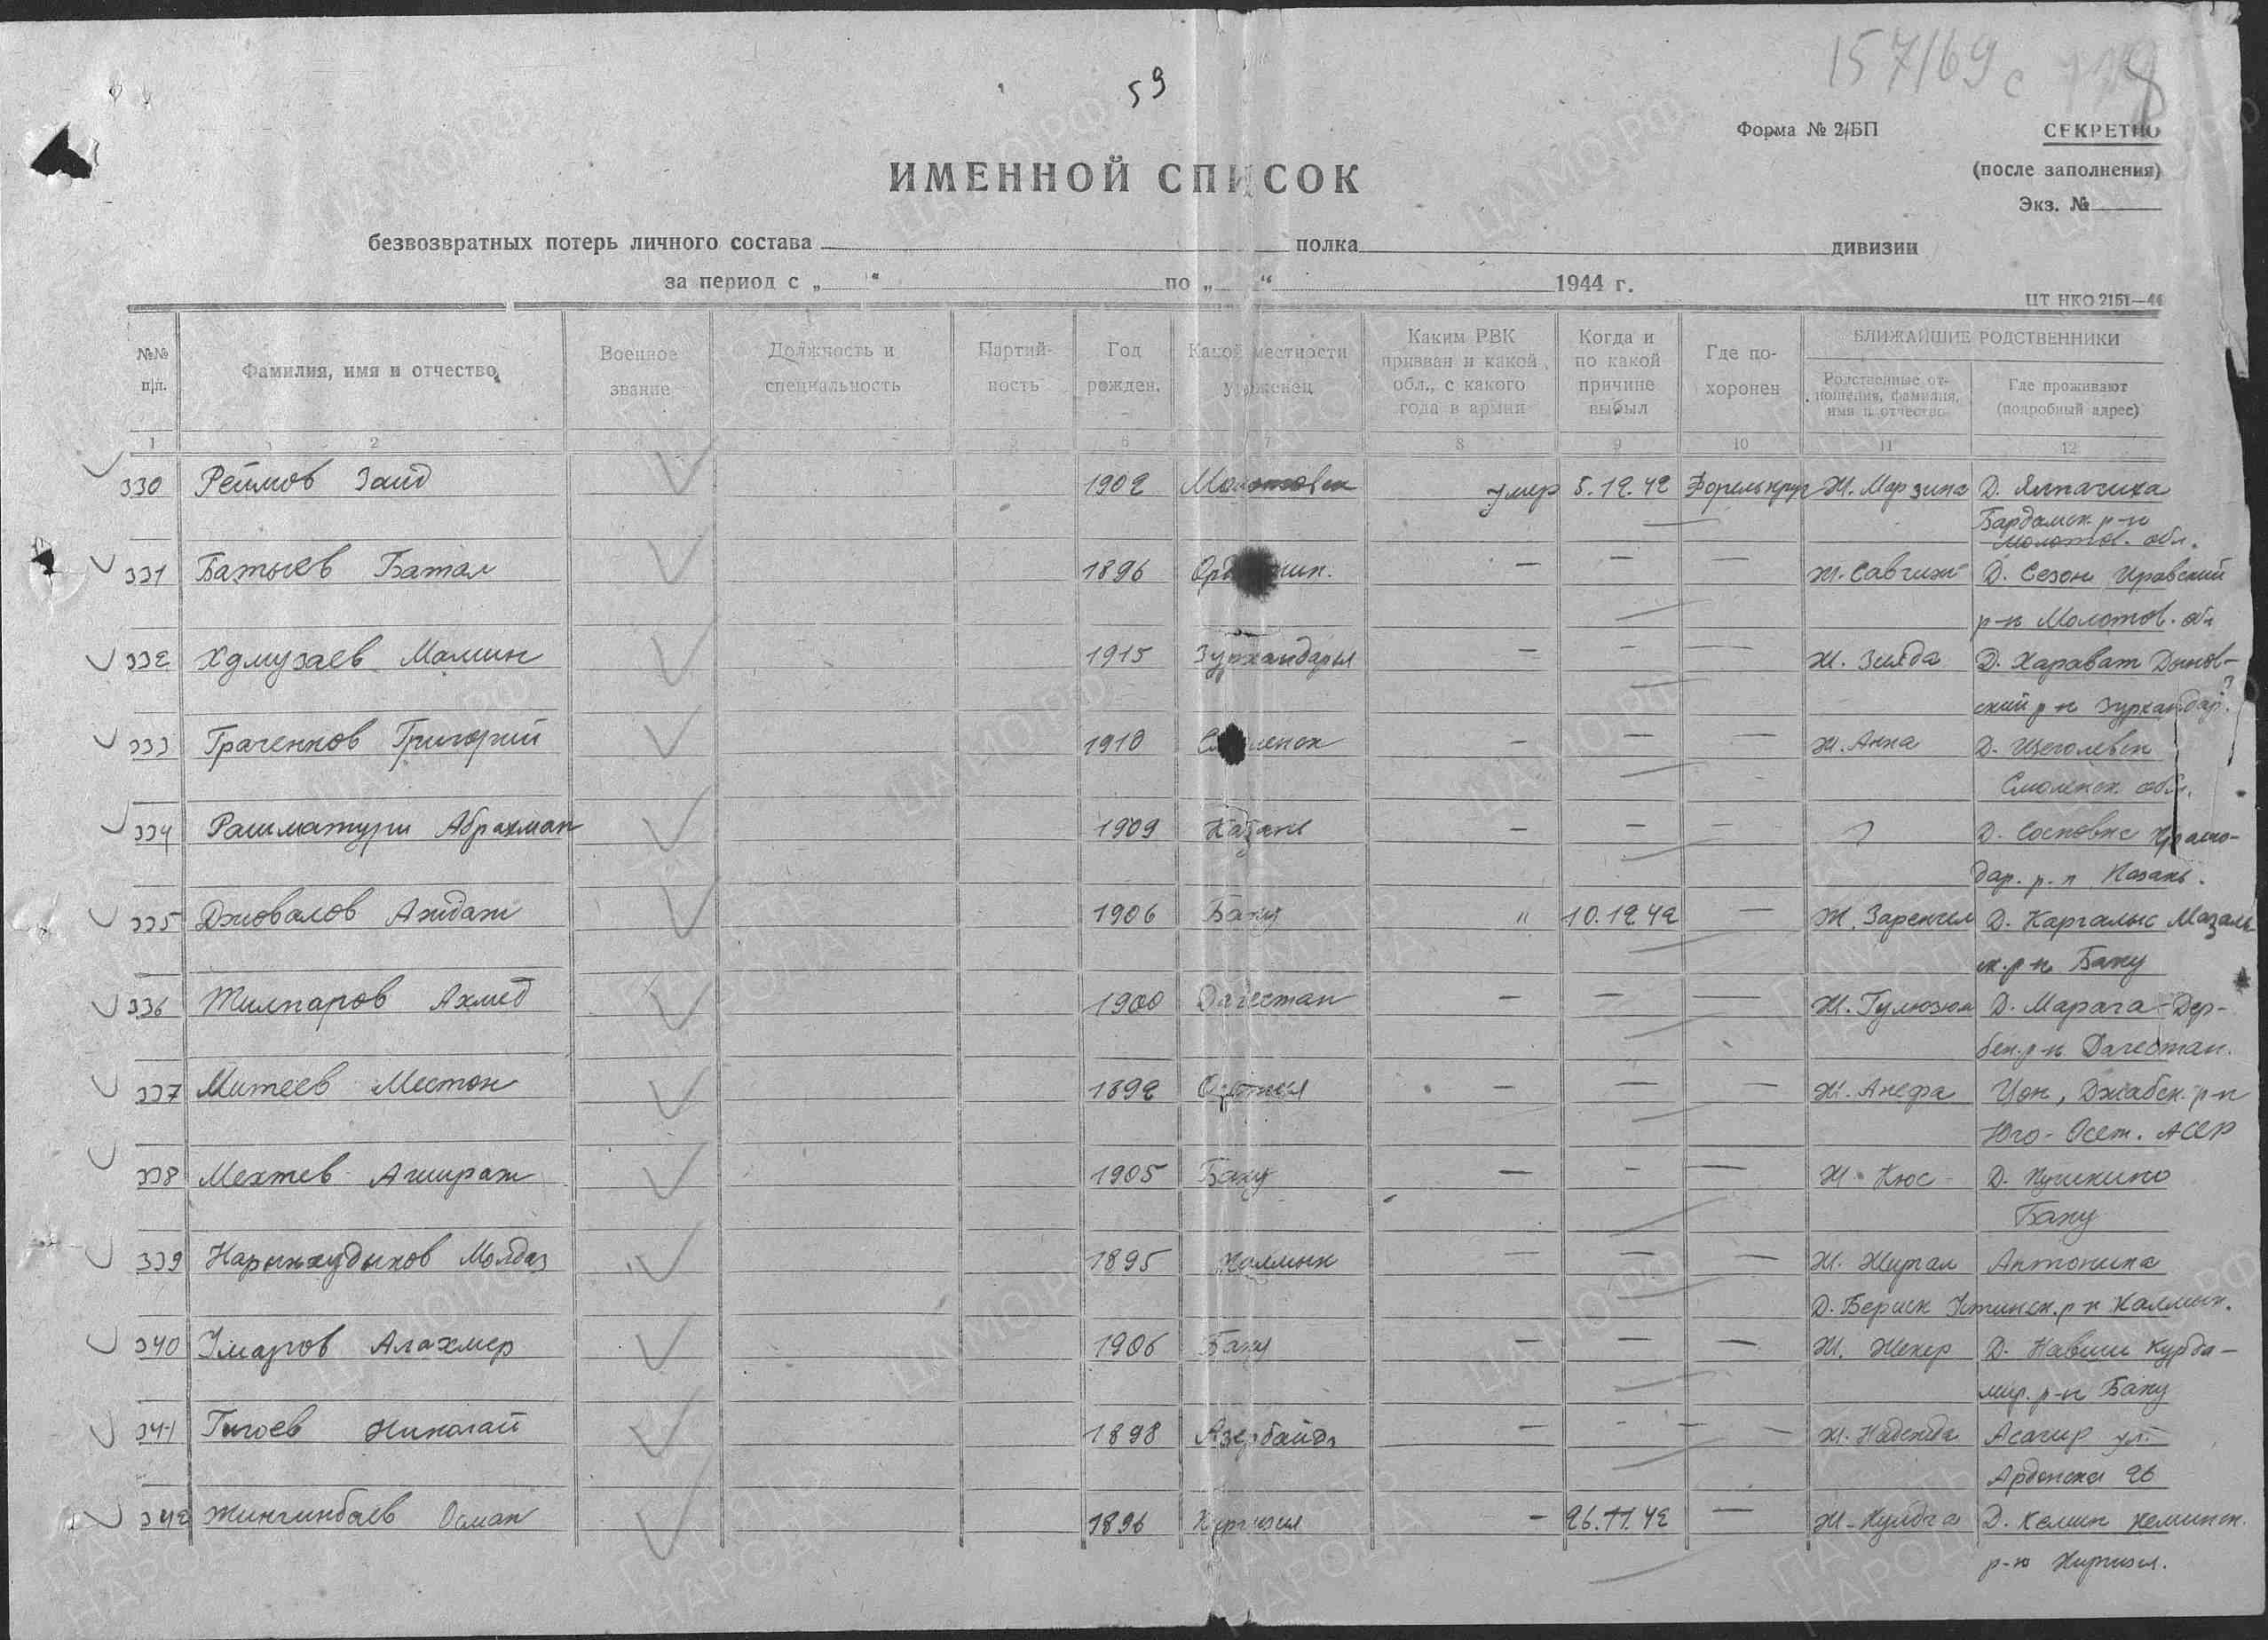 59
157/69 с
Форма № 2/БП
СЕКРЕТНО
(после заполнения)
Экз. №
ИМЕННОЙ СПИСОК
безвозвратных потерь личного состава полка дивизии
за период с „ “ по „ “ 1944 г.
ЦТ НКО 2151—44
№№ п/п. Фамилия, имя и отчество Военное звание Должность и специальность Партий- ность Год рожден. Какой местности уроженец Каким РВК призван и какой обл., с какого года в армии Когда и по какой причине выбыл Где по- хоронен БЛИЖАЙШИЕ РОДСТВЕННИКИ
Родственные от- ношения, фамилия, имя и отчество Где проживают (подробный адрес)
1 2 5 6 7 8 9 10 11 12
330 Реимов Заид 1902 Молотовск умер 5.12.42 Форелькруг Ж. Марзина Д. Ялпачиха
Бардамск. р-н
Молотов. обл.
331 Батыев Батал 1896 — — — Ж. Савчиж Д. Сезон Ировский
р-н Молотов. обл
332 Хдмузаев Мамин 1915 Зурхандарья — — — Ж. Зияда Д. Харават Дынов-
ский р-н Зурхандар.?
333 Граченков Григорий 1910 Смоленск — — — Ж. Анна Д. Щеголевск
Смоленск. обл.
334 Рашматури Абрахман 1909 Казань — — — ? Д. Сосновке Крамо-
дар. р-н Казань.
335 Джовалов Аждаж 1906 Баку " 10.12.42 — Ж. Заренгил Д. Каргалык Мазаль
ск. р-н Баку
336 Жилпаров Ахмед 1900 Дагестан — — — Ж. Гулюзюм Д. Марага - Дер-
бен. р-н Дагестан.
337 Митеев Местон 1892 Осетия — — — Ж. Анефа Цон, Джабск. р-н
Юго-Осет. АССР
338 Мехтев Агшраж 1905 Баку — — — Ж. Кюс Д. Пушкино
Баку
339 Нарынхудыков Молдаз 1895 Калмык — — — Ж. Жиргал Антонина
Д. Бериск Устинск. р-н Калмык.
340 Умаров Алахмер 1906 Баку — — — Ж. Шекер Д. Навиш Курда-
мир. р-н Баку
341 Гигоев Николай 1898 Азербайдж — — — Ж. Надежда Асагир ул.
Ардонска 26
342 Жингинбаев Осман 1896 Киргизия — 26.11.42 — Ж. Кулбга Д. Кемин Кеминск.
р-н Киргизия.